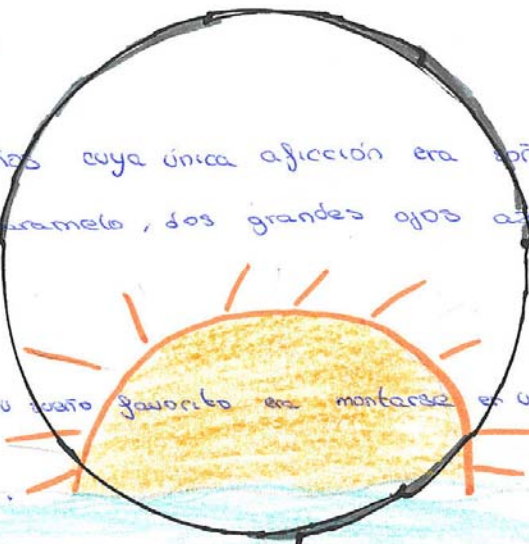 cuya única aficción era
caramelo, dos grandes ojos
sueño favorito era montarse en